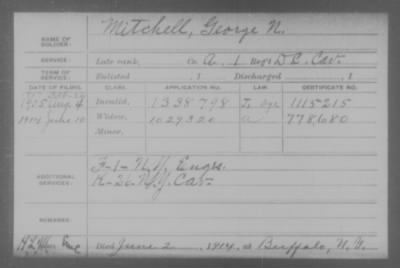 NAME OF SOLDIER: Mitchell, George N.
SERVICE: Late rank, Co. A. 1 Reg't D.C. Cav.
TERM OF SERVICE: Enlisted , 1 Discharged , 1
DATE OF FILING. CLASS. APPLICATION NO. LAW. CERTIFICATE NO.
1905 Aug 4 Invalid, 1338798 1115215
1914 June 10 Widow, 1029320 a 778,680
Minor,
ADDITIONAL SERVICES: F-1- Engrs.
K-26. N.Y. Cav.
REMARKS:
Died June 2 1914, at Buffalo, N.Y.